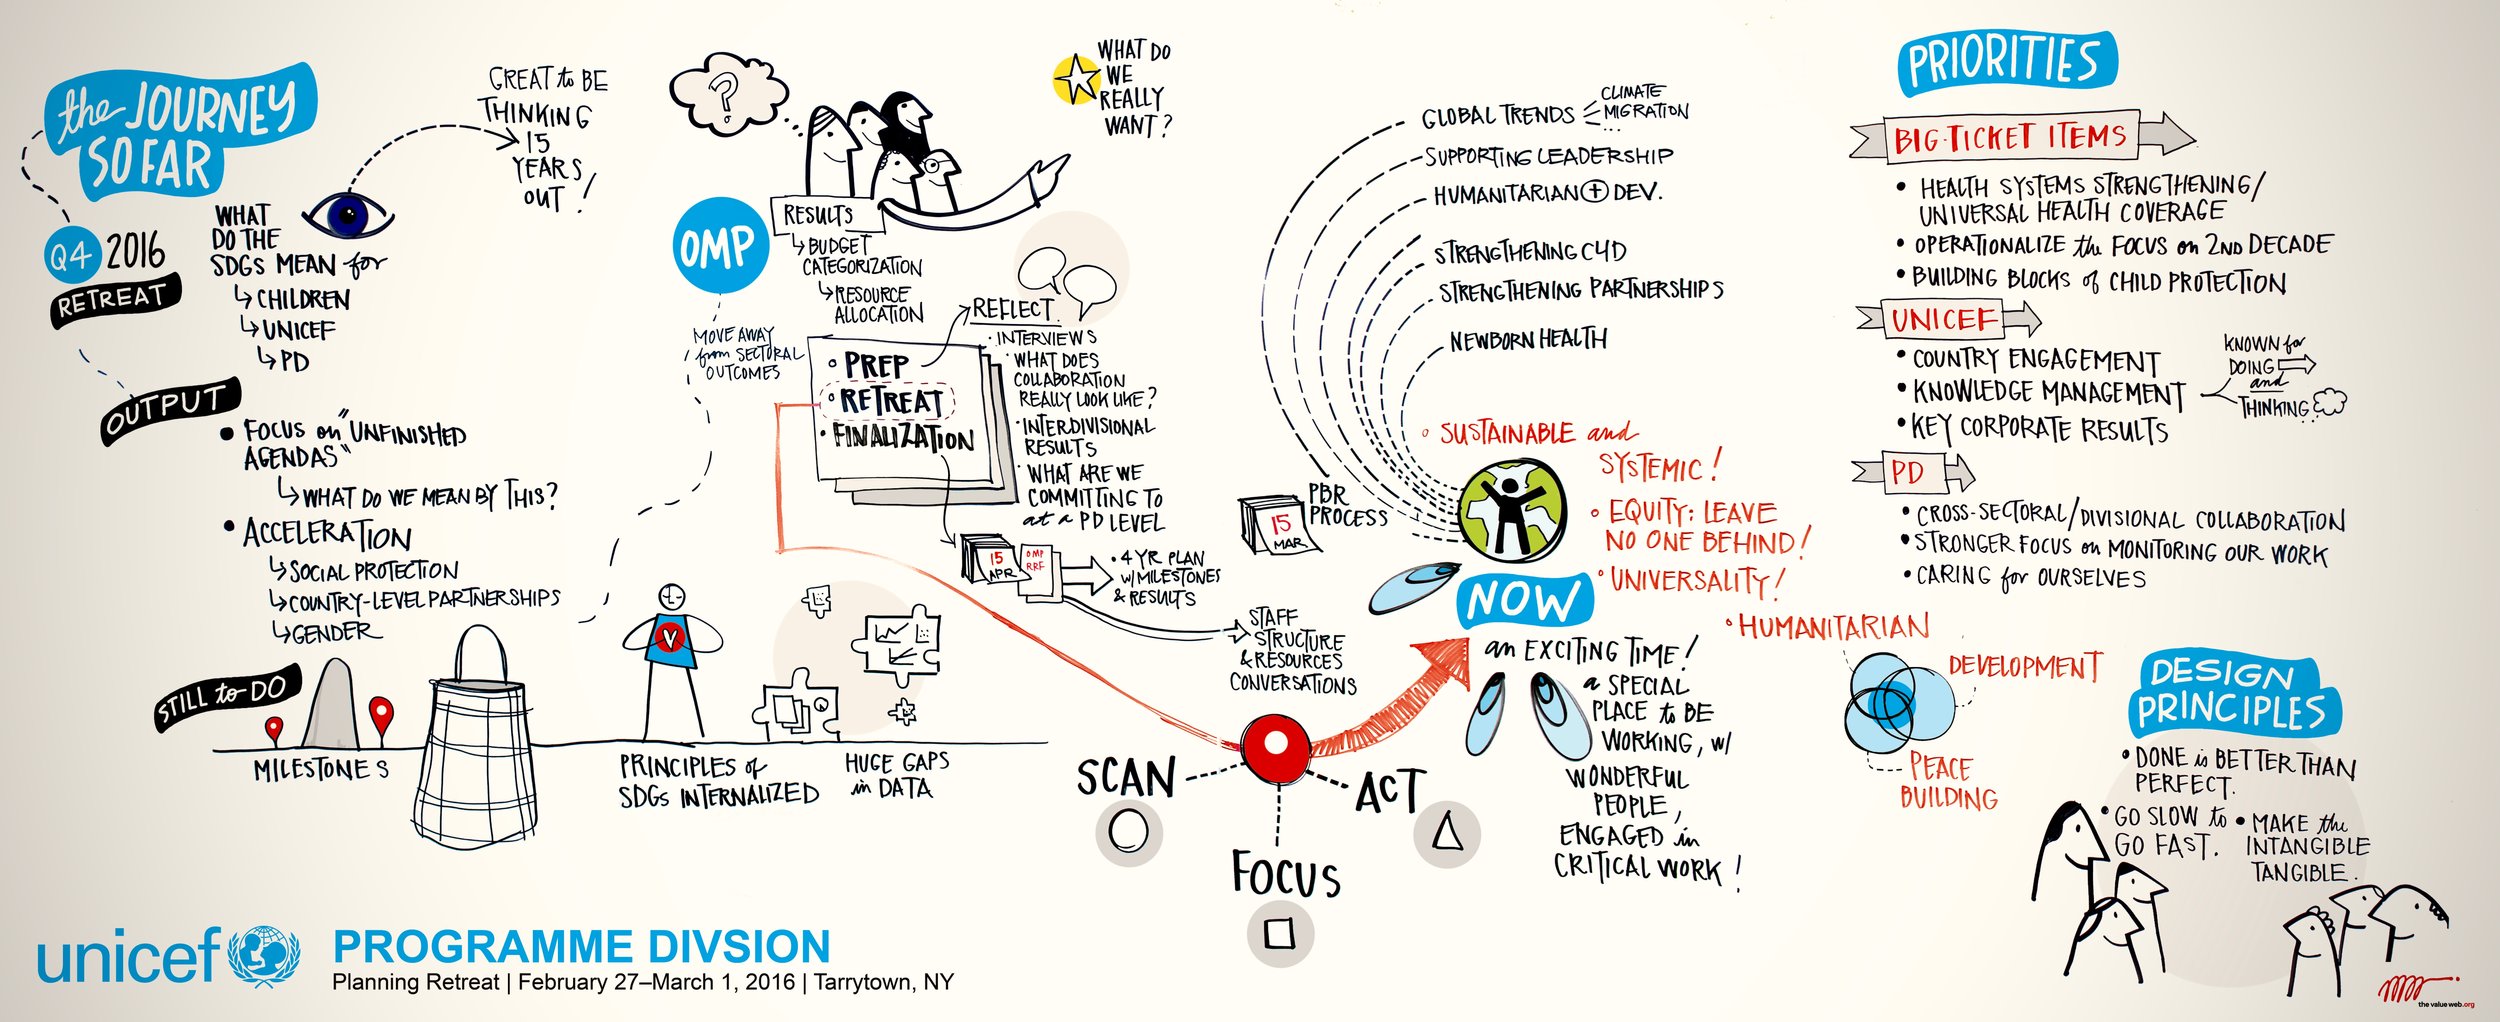 the JOURNEY
SO FAR
Q4 2016
RETREAT
WHAT
DO THE
SDGS MEAN for
↳ CHILDREN
↳ UNICEF
↳ PD
GREAT to BE
THINKING
15
YEARS
OUT!
OUTPUT
• FOCUS on "UNFINISHED
AGENDAS"
↳ WHAT DO WE MEAN BY THIS?
• ACCELERATION
↳ SOCIAL PROTECTION
↳ COUNTRY-LEVEL PARTNERSHIPS
↳ GENDER
STILL to DO
MILESTONES
PRINCIPLES of
SDGS INTERNALIZED
HUGE GAPS
in DATA
?
WHAT DO
WE
REALLY
WANT?
OMP
RESULTS
↳ BUDGET
CATEGORIZATION
↳ RESOURCE
ALLOCATION
MOVE AWAY
from SECTORAL
OUTCOMES
◦ PREP
◦ RETREAT
• FINALIZATION
REFLECT
• INTERVIEWS
• WHAT DOES
COLLABORATION
REALLY LOOK LIKE?
• INTERDIVISIONAL
RESULTS
• WHAT ARE WE
COMMITTING TO
at a PD LEVEL
15
APR
OMP
RRF
• 4 YR PLAN
W/MILESTONES
& RESULTS
STAFF
STRUCTURE
& RESOURCES
CONVERSATIONS
SCAN
FOCUS
ACT
GLOBAL TRENDS
CLIMATE
MIGRATION
...
SUPPORTING LEADERSHIP
HUMANITARIAN + DEV.
STRENGTHENING C4D
STRENGTHENING PARTNERSHIPS
NEWBORN HEALTH
15
MAR
PBR
PROCESS
◦ SUSTAINABLE and
SYSTEMIC!
◦ EQUITY: LEAVE
NO ONE BEHIND!
• UNIVERSALITY!
◦ HUMANITARIAN
DEVELOPMENT
PEACE
BUILDING
NOW
an EXCITING TIME!
a SPECIAL
PLACE to BE
WORKING, W/
WONDERFUL
PEOPLE,
ENGAGED in
CRITICAL WORK!
PRIORITIES
BIG-TICKET ITEMS
• HEALTH SYSTEMS STRENGTHENING/
UNIVERSAL HEALTH COVERAGE
• OPERATIONALIZE the FOCUS on 2ND DECADE
• BUILDING BLOCKS of CHILD PROTECTION
UNICEF
• COUNTRY ENGAGEMENT
• KNOWLEDGE MANAGEMENT
• KEY CORPORATE RESULTS
KNOWN for
DOING
and
THINKING
PD
• CROSS-SECTORAL/DIVISIONAL COLLABORATION
• STRONGER FOCUS on MONITORING OUR WORK
• CARING for OURSELVES
DESIGN
PRINCIPLES
• DONE is BETTER THAN
PERFECT.
• GO SLOW to
GO FAST.
• MAKE the
INTANGIBLE
TANGIBLE.
unicef
PROGRAMME DIVSION
Planning Retreat | February 27–March 1, 2016 | Tarrytown, NY
the value web.org